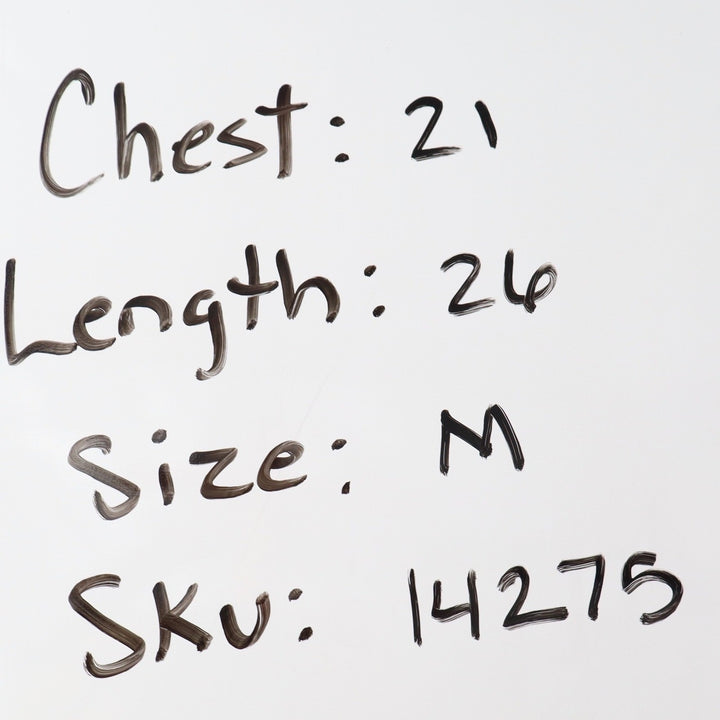 Chest: 21
Length: 26
Size: M
Sku: 14275